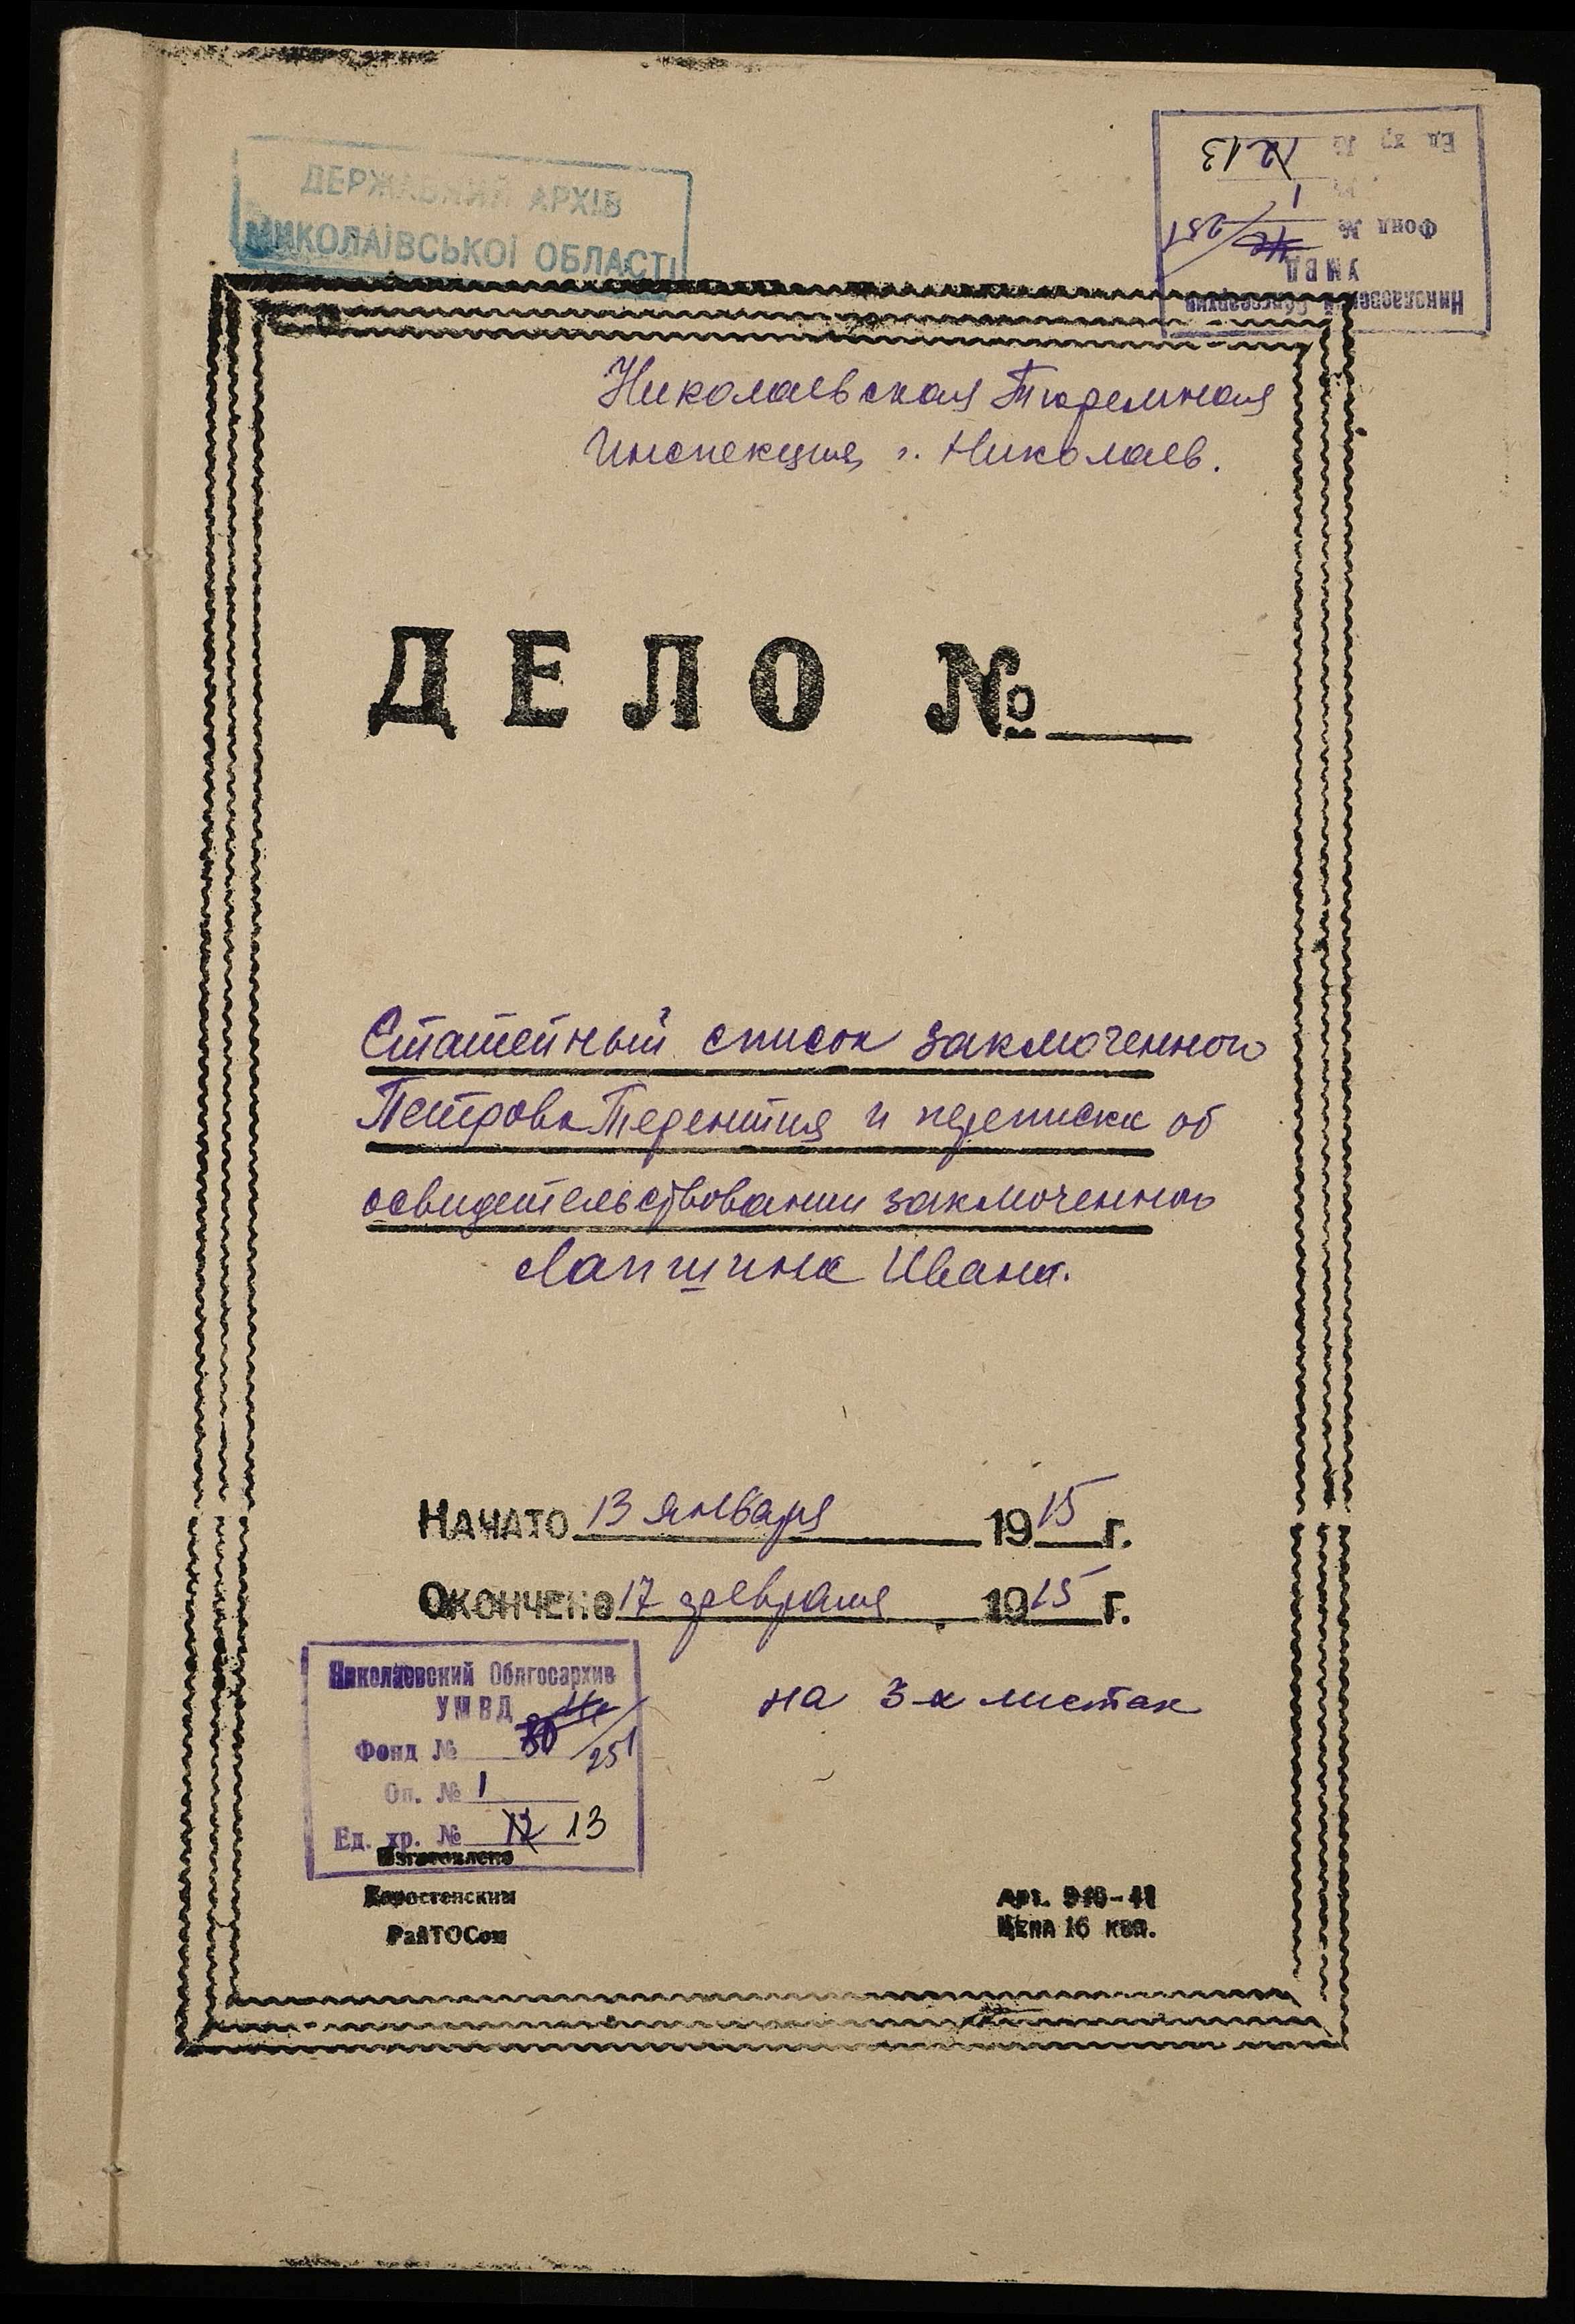 ДЕРЖАВНИЙ АРХІВ
МИКОЛАЇВСЬКОЇ ОБЛАСТІ
Николаевский Облгосархив
УМВД
Фонд № 251
1
Ед. хр. № 12 13
Николаевская Тюремная
Инспекция г. Николаев.
ДЕЛО №
Статейный список заключенного
Петрова Терентия и переписка об
освидетельствовании заключенного
Лапшина Ивана.
НАЧАТО 13 января 1915 г.
ОКОНЧЕНО 17 февраля 1915 г.
на 3-х листах
Николаевский Облгосархив
УМВД
Фонд № 251
Оп. № 1
Ед. хр. № 12 13
Изготовлено
Коростенским
РайТОСом
Арт.
Цена 16 коп.